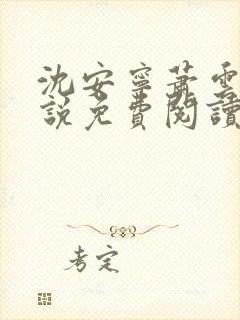 沈安寧蕭雲
說免費閱讀
考定